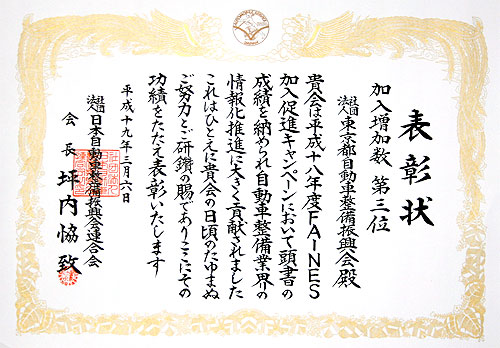 表彰状
加入増加数 第三位
社団法人 東京都自動車整備振興会殿
貴会は平成十八年度FAINES
加入促進キャンペーンにおいて頭書の
成績を納められ自動車整備業界の
情報化推進に大きく貢献されました
これはひとえに貴会の日頃のたゆまぬ
ご努力とご研鑽の賜でありここにその
功績をたたえ表彰いたします
平成十九年三月六日
社団法人 日本自動車整備振興会連合会
会長 坪内恊致